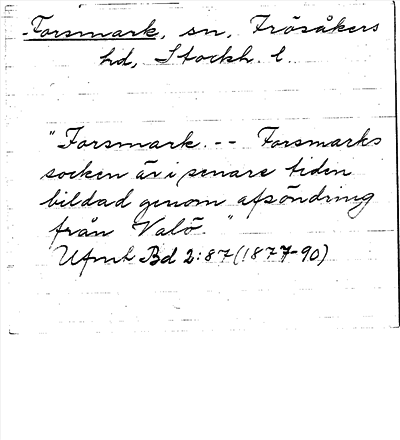 Forsmark, sn, Frösåkers
hd, Stockh. l.
"Forsmark. -- Forsmarks
socken är i senare tiden
bildad genom afsöndring
från Valö."
Ufmt Bd 2:87 (1877-90)